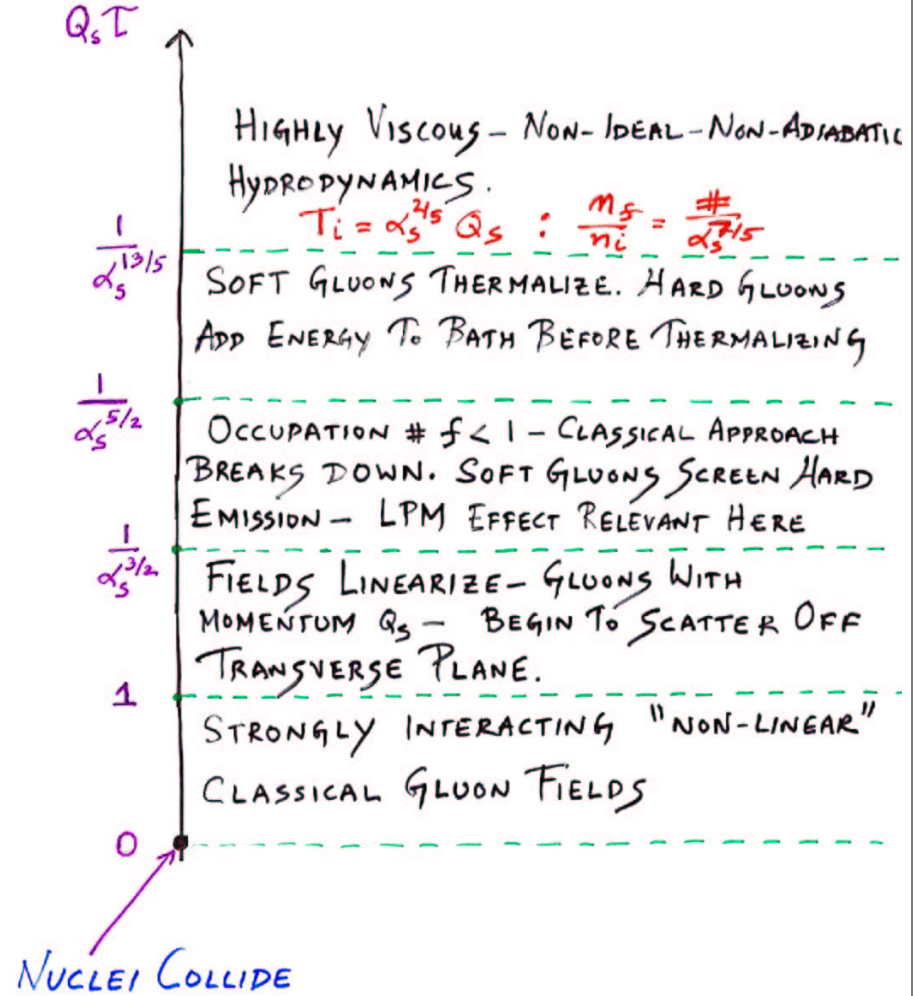 Q_s τ
HIGHLY VISCOUS - NON-IDEAL-NON-ADIABATIC
HYDRODYNAMICS.
T_i = α_s^{2/5} Q_s : n_f/n_i = #/α_s^{2/5}
1/α_s^{13/5}
SOFT GLUONS THERMALIZE. HARD GLUONS
ADD ENERGY TO BATH BEFORE THERMALIZING
1/α_s^{5/2}
OCCUPATION # f < 1 - CLASSICAL APPROACH
BREAKS DOWN. SOFT GLUONS SCREEN HARD
EMISSION - LPM EFFECT RELEVANT HERE
1/α_s^{3/2}
FIELDS LINEARIZE - GLUONS WITH
MOMENTUM Q_s - BEGIN TO SCATTER OFF
TRANSVERSE PLANE.
1
STRONGLY INTERACTING "NON-LINEAR"
CLASSICAL GLUON FIELDS
0
NUCLEI COLLIDE